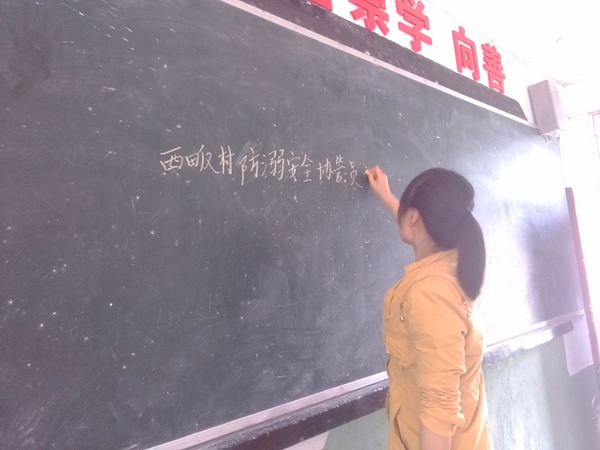 崇学 向善
西畈村防溺安全协管员